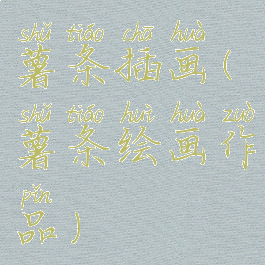 shǔ tiáo chā huà
薯条插画(
shǔ tiáo huì huà zuò
薯条绘画作
pǐn
品)